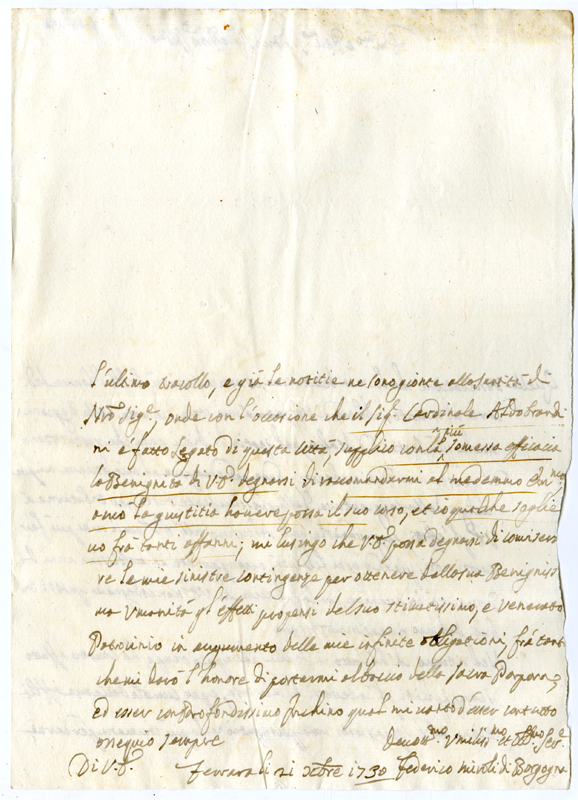 l'ultimo tracollo, e già le notitie ne sono gionte alla Santità di
Nrõ Sig.e, onde con l'occasione che il Sig.r Cardinale Aldobrandi
ni è fatto Legato di questa Città, supplico con la più somessa efficacia
la Benignità di V.E. degnarsi di raccomandarmi al medemmo
acciò la giustitia havere possa il suo corso, et io qualche soglie
uo frà tanti affanni; mi lusingo che V.E. possa degnarsi di
re le mie sinistre contingenze per ottenere dalla sua Benigniss
ma Vmanità gl'effetti propensi del suo stimatissimo, e venerato
Patrocinio in augumento delle mie infinite obligationi, frà tanto
che mi dò l'honore di portarmi al bacio della Sacra Porpora,
ed esser con profondissimo Inchino qual mi vanto d'esser con tutto
ossequio sempre
Di V.E.
Deuott.mo Vmiliss.mo et Obl.mo Ser.e
Ferrara li 21 Xbre 1730 Federico Miroli di Borgogna